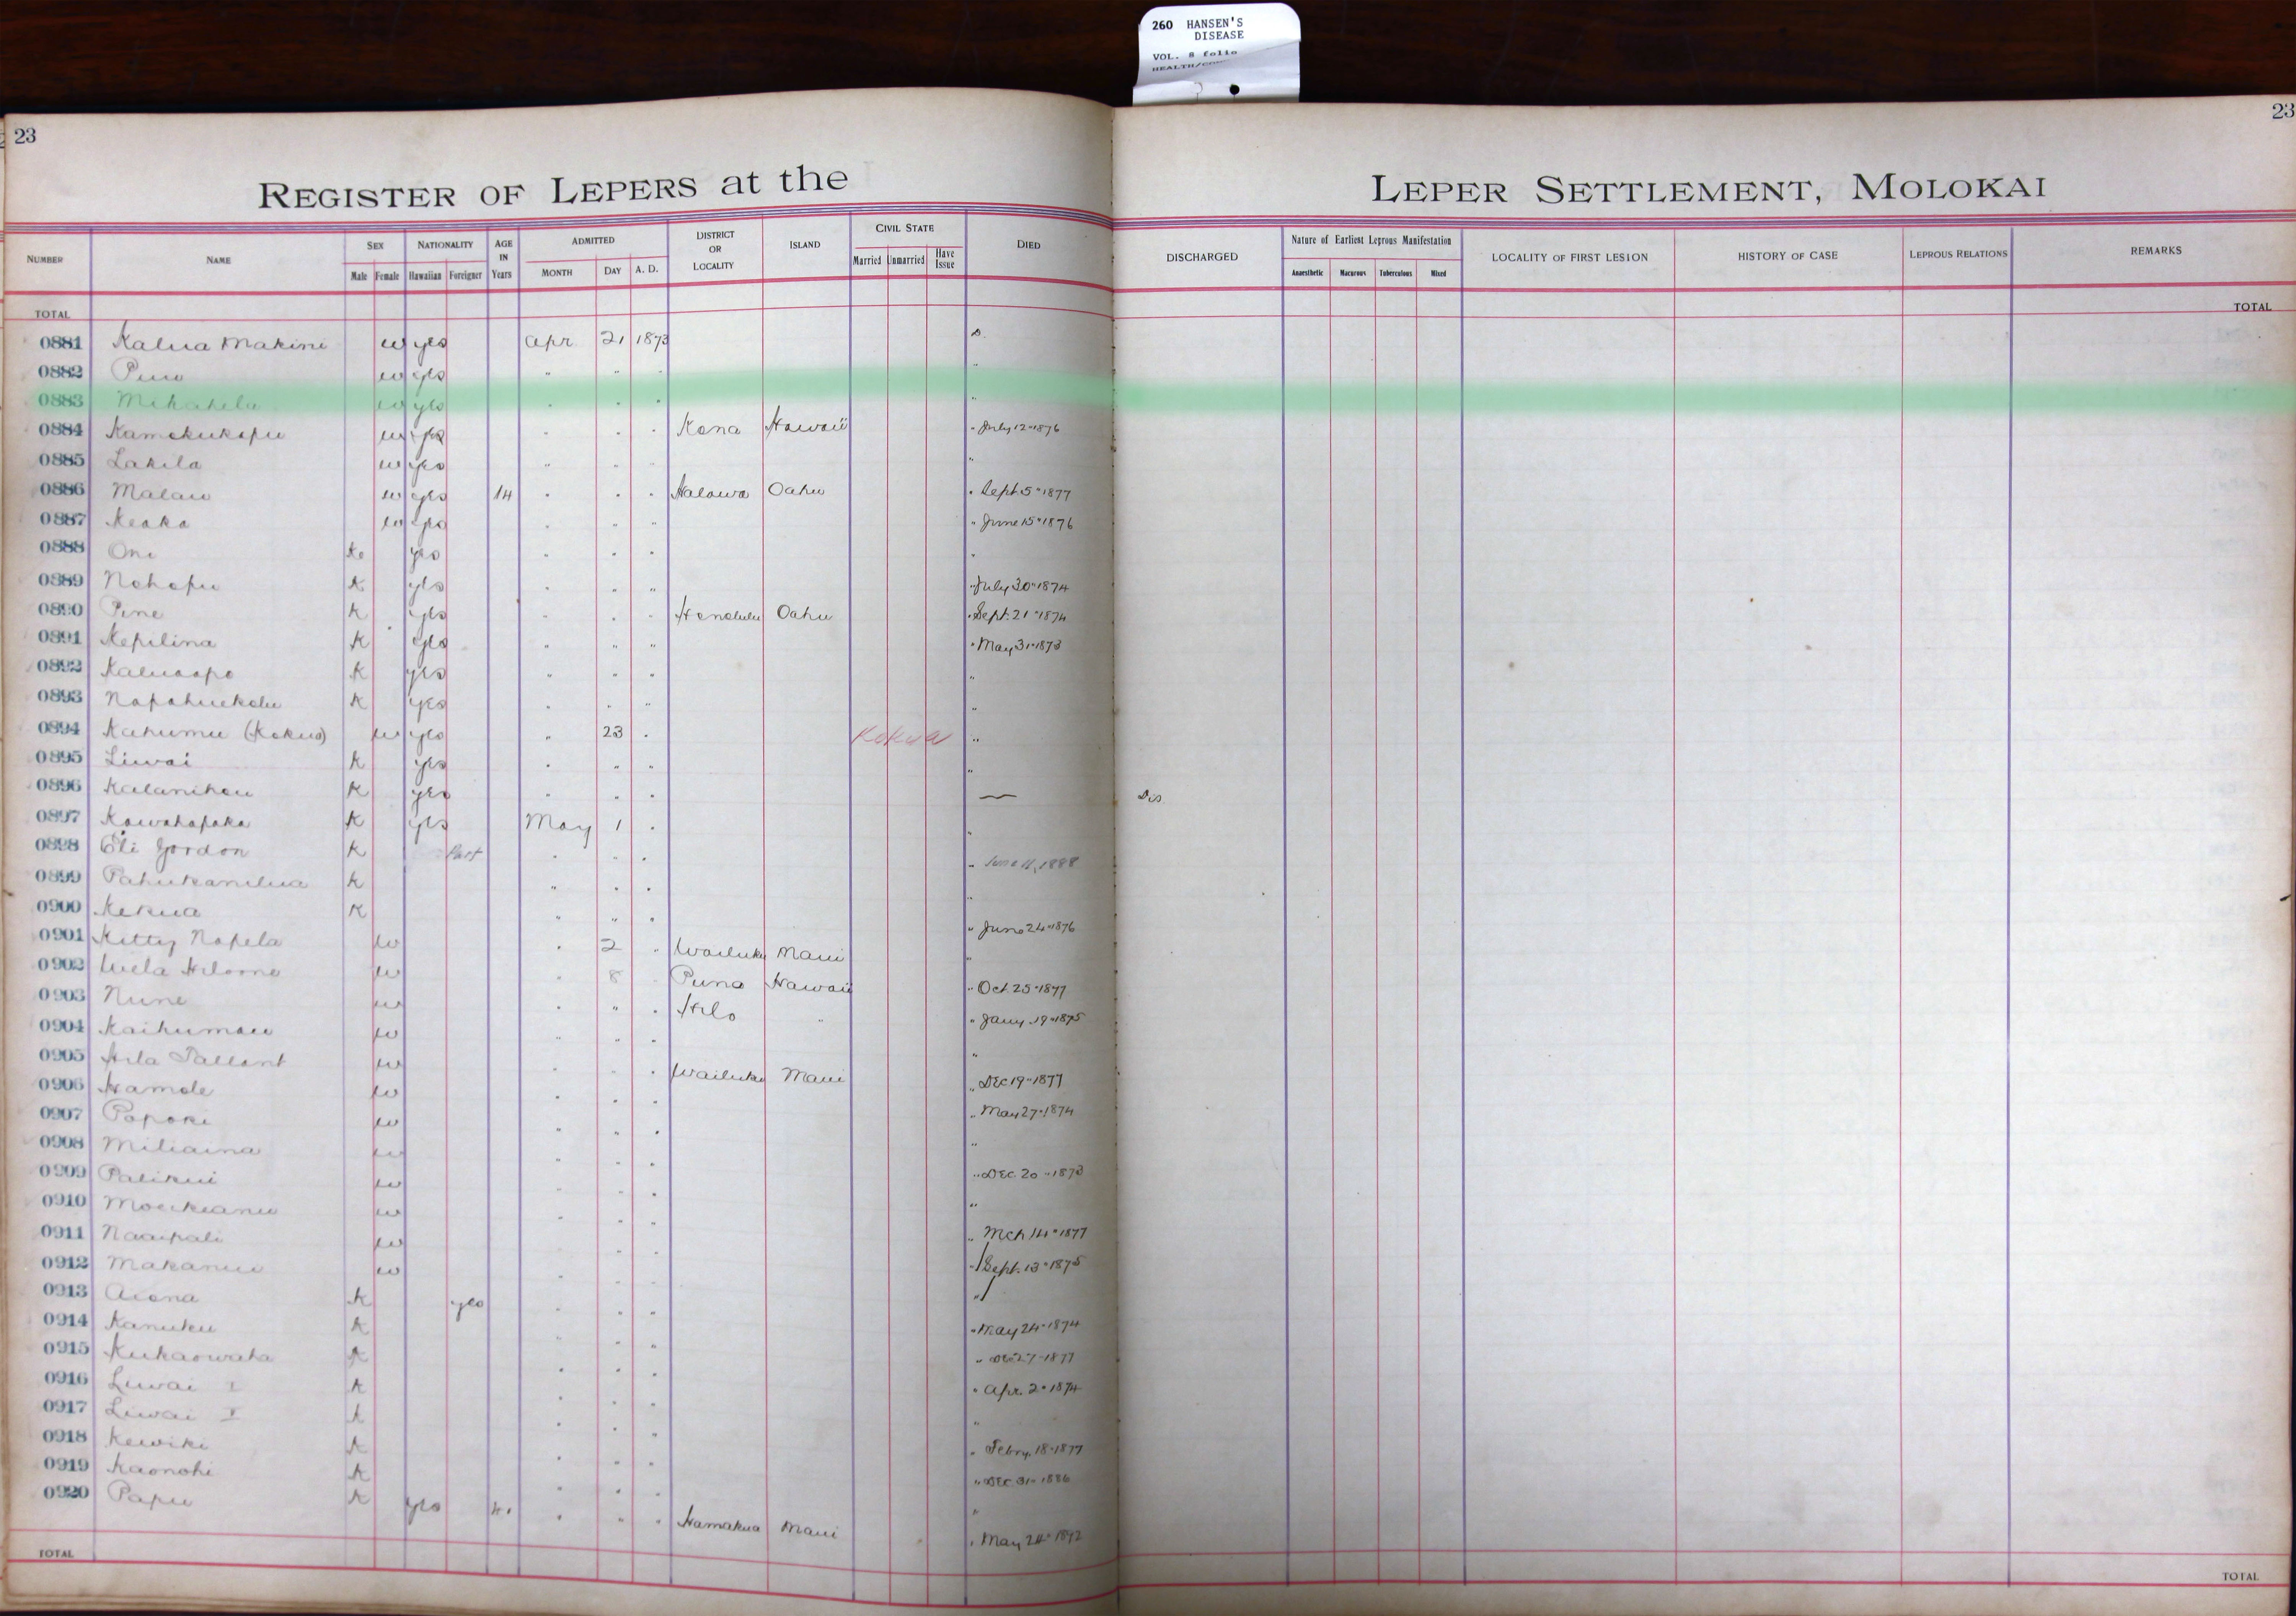 260 HANSEN'S
DISEASE
VOL. 8 folio
23
23
REGISTER OF LEPERS at the LEPER SETTLEMENT, MOLOKAI
NUMBER NAME SEX NATIONALITY AGE IN Years ADMITTED DISTRICT OR LOCALITY ISLAND CIVIL STATE DIED DISCHARGED Nature of Earliest Leprous Manifestation LOCALITY OF FIRST LESION HISTORY OF CASE LEPROUS RELATIONS REMARKS
Male Female Hawaiian Foreigner MONTH DAY A. D. Married Unmarried Have Issue Anaesthetic Macurous Tuberculous Mixed
TOTAL TOTAL
0881 Kalua Makini w yes Apr 21 1873 D.
0882 w yes " " " "
0883 Mikahela w yes " " " "
0884 Kamekukapu w yes " " " Kona Hawaii " July 12" 1876
0885 Lakila w yes " " " "
0886 Malau w yes 14 " " " Halawa Oahu " Sept. 5" 1877
0887 Keaka w yes " " " " June 15" 1876
0888 Oni K yes " " " "
0889 Nohopu K yes " " " " July 30" 1874
0890 Pine K yes " " " Honolulu Oahu " Sept. 21" 1874
0891 Kepilina K yes " " " " May 31" 1873
0892 Kaluaopo K yes " " " "
0893 Napahuekolu K yes " " " "
0894 Kahumu (Kokua) w yes " 23 " Kokua "
0895 Liwai K yes " " " "
0896 Kalanihou K yes " " " — Dis
0897 Kawahapaka K yes May 1 " "
0898 Eli Gordon K Part " " " " June 11, 1888
0899 Pahukanilua K " " " "
0900 Kekua K " " " " June 24" 1876
0901 Kitty Napela w " 2 " Wailuku Maui "
0902 w " 8 Puna Hawaii " Oct. 25" 1877
0903 Nune w " " " Hilo " " Jany. 19" 1875
0904 Kaihumau w " " " "
0905 Hila Tallant w " " " Wailuku Maui " Dec 19" 1877
0906 Hamole w " " " " May 27" 1874
0907 Papoki w " " " "
0908 Miliaina w " " " " Dec. 20" 1873
0909 Palikui w " " " "
0910 Moeikeanu w " " " " Mch 14" 1877
0911 Naaipali w " " " " Sept. 13" 1875
0912 Makanui w " " " "
0913 Aiona K yes " " " " May 24" 1874
0914 Kanuku K " " " " Dec 27" 1877
0915 Kukaowaha K " " " " Apr. 2" 1874
0916 Liwai I K " " " "
0917 Liwai K " " " " Febry. 18" 1877
0918 Kewiki K " " " " Dec. 31" 1886
0919 Kaonohi K " " " "
0920 Papu K yes " " " Hamakua Maui " May 24"
TOTAL TOTAL